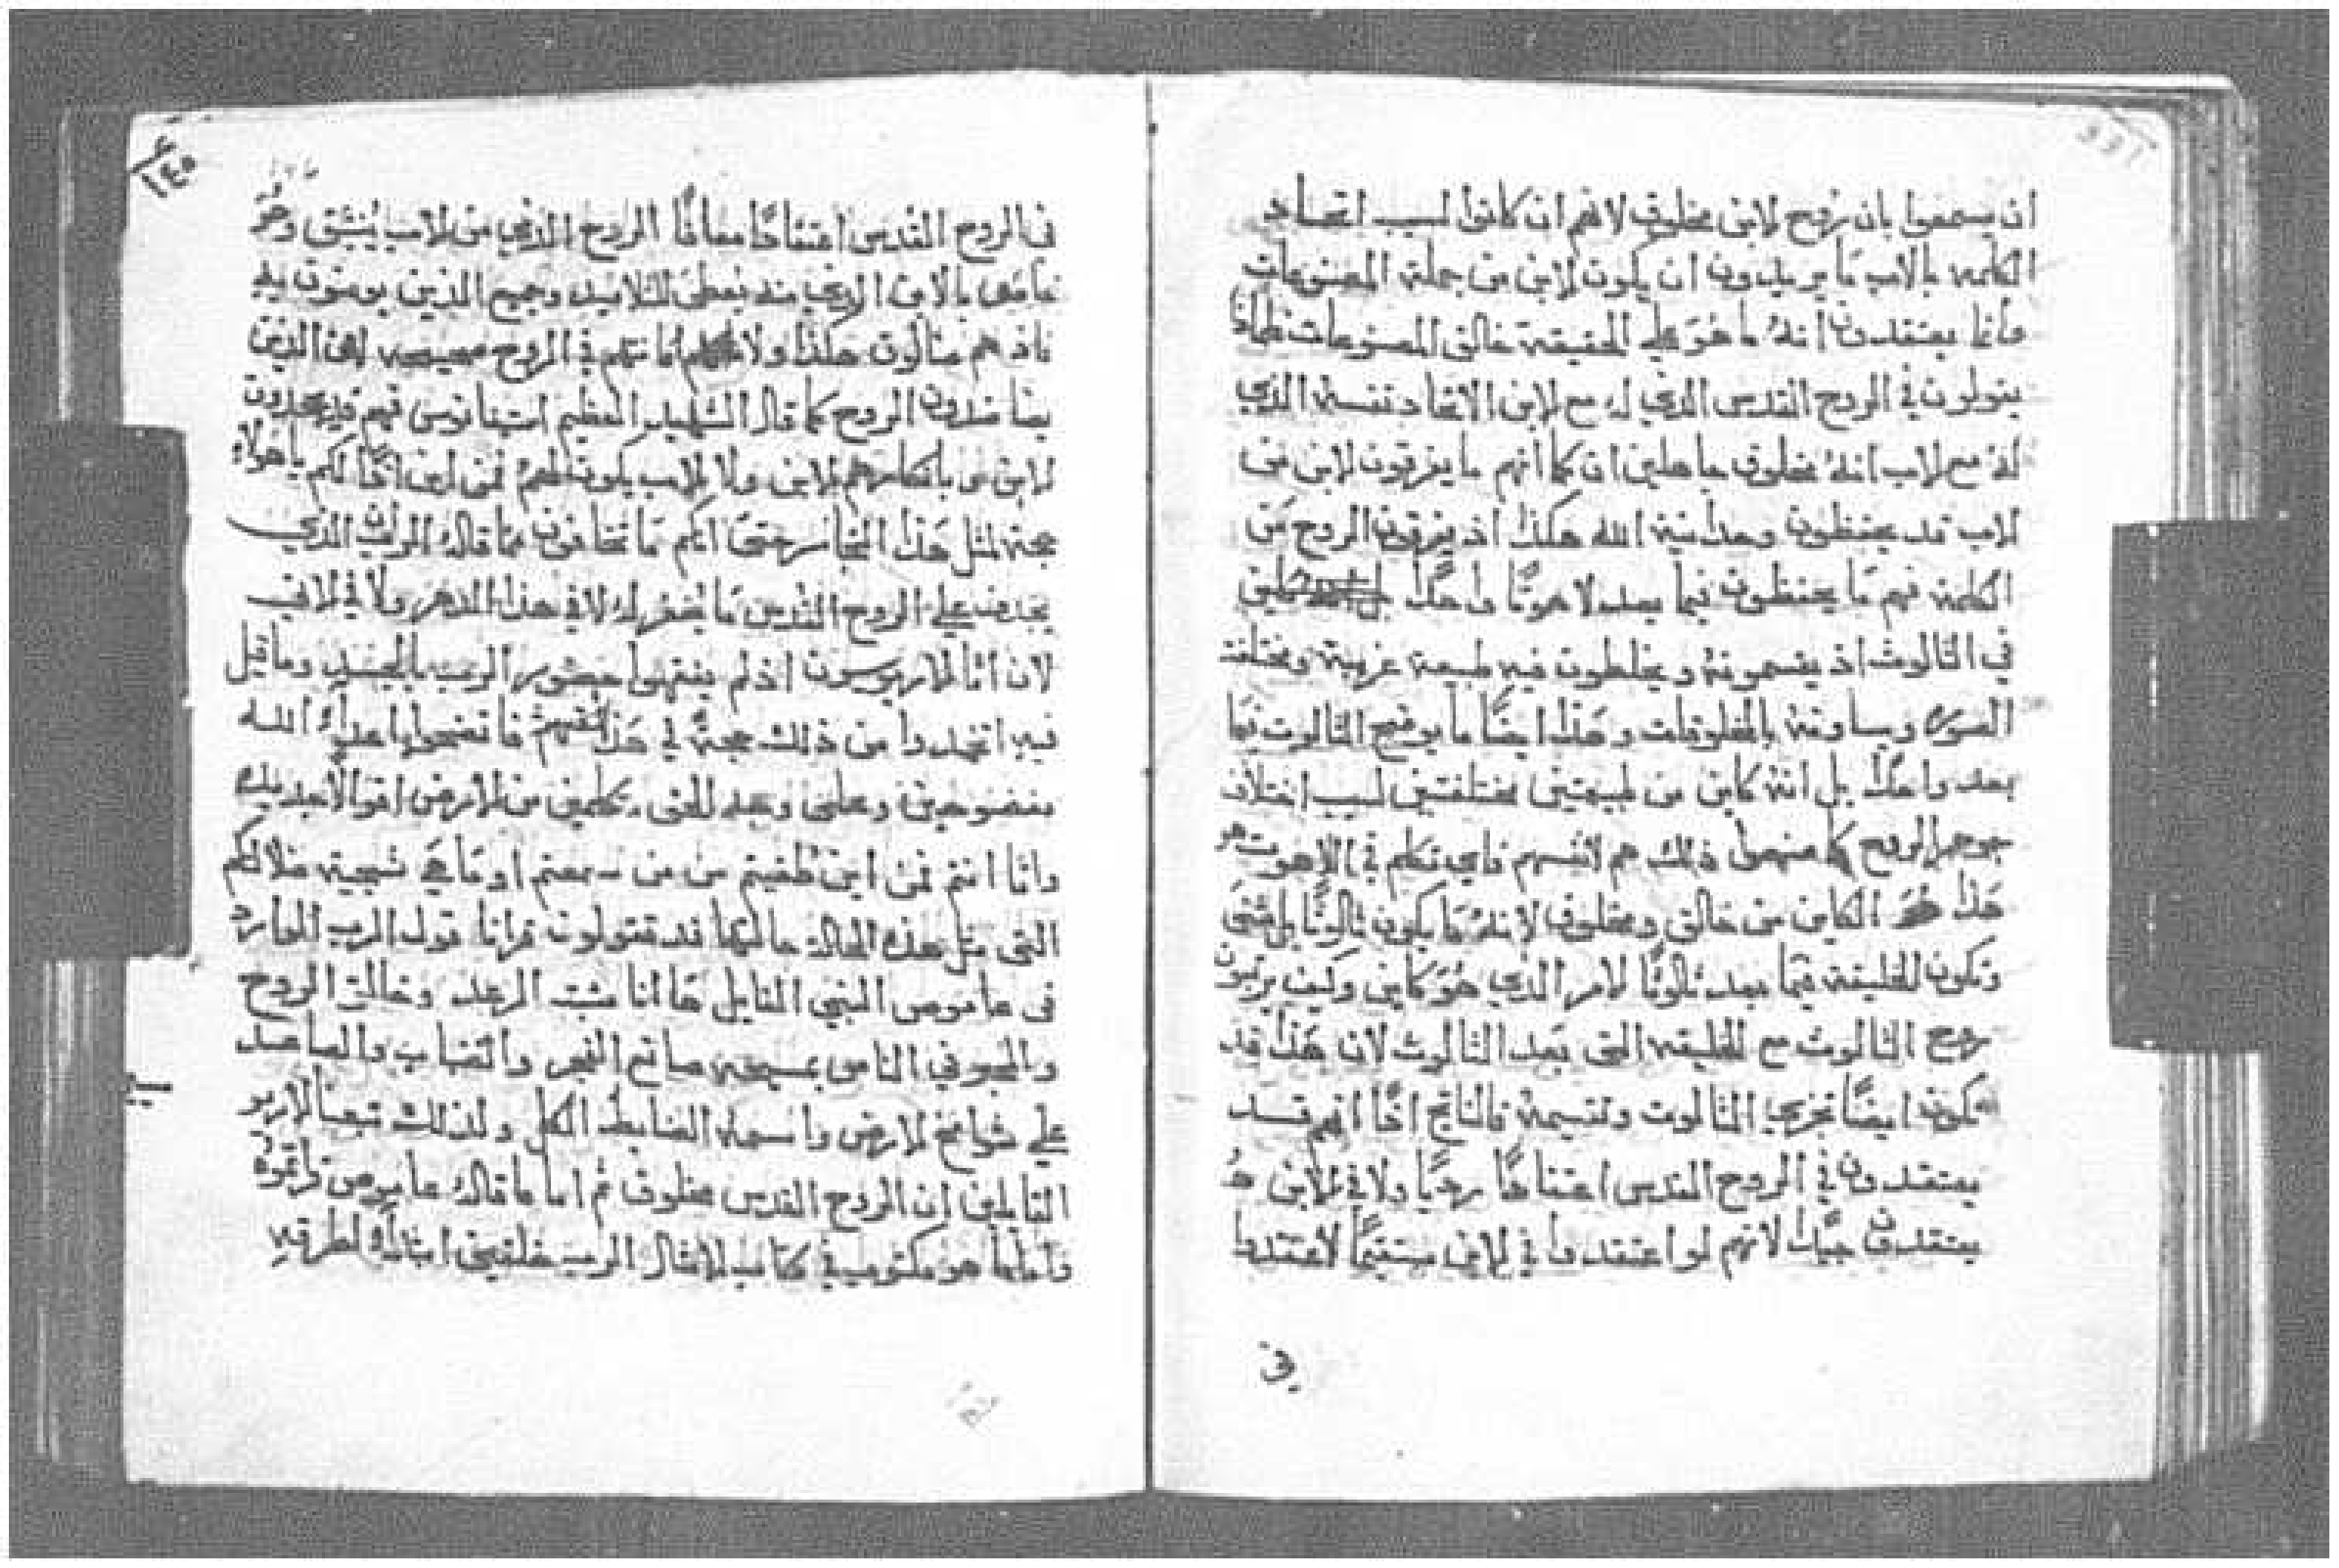 ان يسمعوا بان روح الابن مخلوق لانهم ان كانوا لسبب اتحاد
الكلمه بالاب ما يريدون ان يكون الابن من جملة المصنوعات
يعتقدون انهُ ما هو علي الحقيقة خالق المصنوعات فلماذا
يقولون في الروح القدس الذي له مع الابن الاتحاد نفسه الذي
لهُ مع الاب انهُ مخلوق جاهلين ان كما انهم ما يفرقون الابن من
الاب قد يحفظون وحدانية الله هكذا اذ يفرقون الروح من
الكلمة فهم ما يحفظون فيما بعد لاهوتًا واحدًا
في الثالوث اذ يقسمونهُ ويخلطون فيه طبيعة غريبة ومختلفة
الصوره ويساونهُ بالمخلوقات وهذا ايضًا ما يوضح الثالوث فيما
بعد واحدًا بل انهُ كاين من طبيعتين مختلفتين لسبب اختلاف
جوهر الروح كما صنعوا ذلك هم لانفسهم فاي تكلم في اللاهوت هو
هذا الكاين من خالق ومخلوق لانهُ ما يكون ثالوثًا بل مثنى
وتكون الخليقة فيما بعد ثالوثًا الامر الذي هو كاين وكيف يرتبون
روح الثالوث مع الخليقه التي بعد الثالوث لان هذا قد
يكون ايضًا تجزي الثالوث وتقسيمهُ فالناتج اذًا انهم قد
يعتقدون في الروح القدس اعتقادًا رديًا ولا في الابن
يعتقدون جيدًا لانهم لو اعتقدوا في الابن مستقيمًا لاعتقدوا
في
١٤٥
في الروح القدس اعتقادًا معافًا الروح الذي من الاب ينبثق وهو
خاص بالابن الذي منه يعطى للتلاميذ وجميع الذين يومنون به
فاذ هم ضالون هكذا ولا امانتهم في الروح صحيحه لان الذين
يضاددون الروح كما قال الشهيد العظيم استفانوس فهم قد يجحدون
الابن بانكارهم الابن ولا الاب يكون لهم فمن اين اذًا لكم يا هولاء
حجة لمثل هذا التجاسر حتى انكم ما تخافون مما قاله الرب ان الذي
يجدف علي الروح القدس ما يغفر له لا في هذا الدهر ولا في الاتي
لان اما الاريوسيون اذ لم يفهموا حضور الرب بالجسد وما قيل
فيه اتخذوا من ذلك حجةً في فافتضحوا اعداء الله
مفضوحين وعلى وجه الحق متكلمين من الارض اقوالا جديده
واما انتم فمن اين طغيتم من من سمعتم او ما هي شيمة ضلالكم
التي مثل هذه الحالة حالتها قد تقولون قرانا قول الرب الوارد
في عاموص النبي القايل ها انا مثبت الرعد وخالق الروح
والمخبر في الناس بمسيحه صانع الفجر والضباب والصاعد
علي شوامخ الارض واسمه الضابط الكل ولذلك تبعنا الاريو
القايلين ان الروح القدس مخلوق ثم اما ما قاله عاموص قراتموه
واما ما هو مكتوب في كتاب الامثال الرب خلقني ابتداء لطرقه